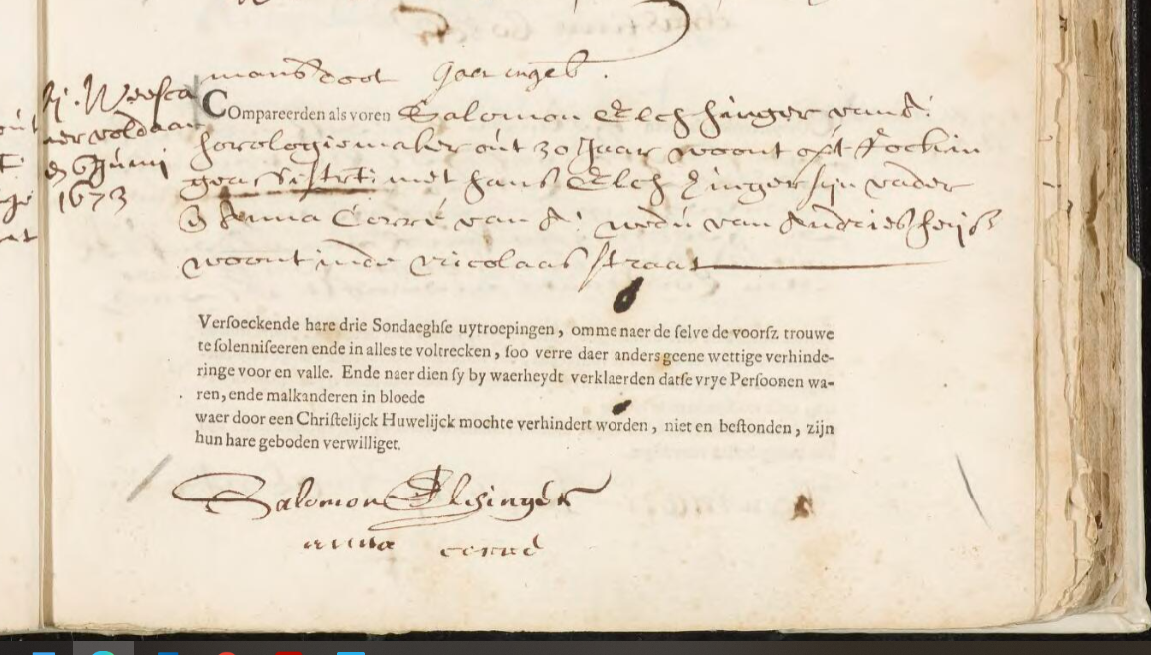 mans doot gaer ingeb.
Compareerden als voren Salomon Elchhinger van A:
horologiemaker out 30 Jaar woont opt Rockin
geassistt: met hans Elch hinger sijn vader
& Anna Corré van A: wedu van Andries heijs
woont inde Nicolaas straat
Weesca
mer voldaan
6 Junij
1673
Versoeckende hare drie Sondaeghse uytroepingen, omme naer de selve de voorsz. trouwe
te solenniseeren ende in alles te voltrecken, soo verre daer anders geene wettige verhinde-
ringe voor en valle. Ende naer dien sy by waerheydt verklaerden datse vrye Persoonen wa-
ren, ende malkanderen in bloede
waer door een Christelijck Huwelijck mochte verhindert worden, niet en bestonden, zijn
hun hare geboden verwilliget.
Salomon Elchinger
anna corré